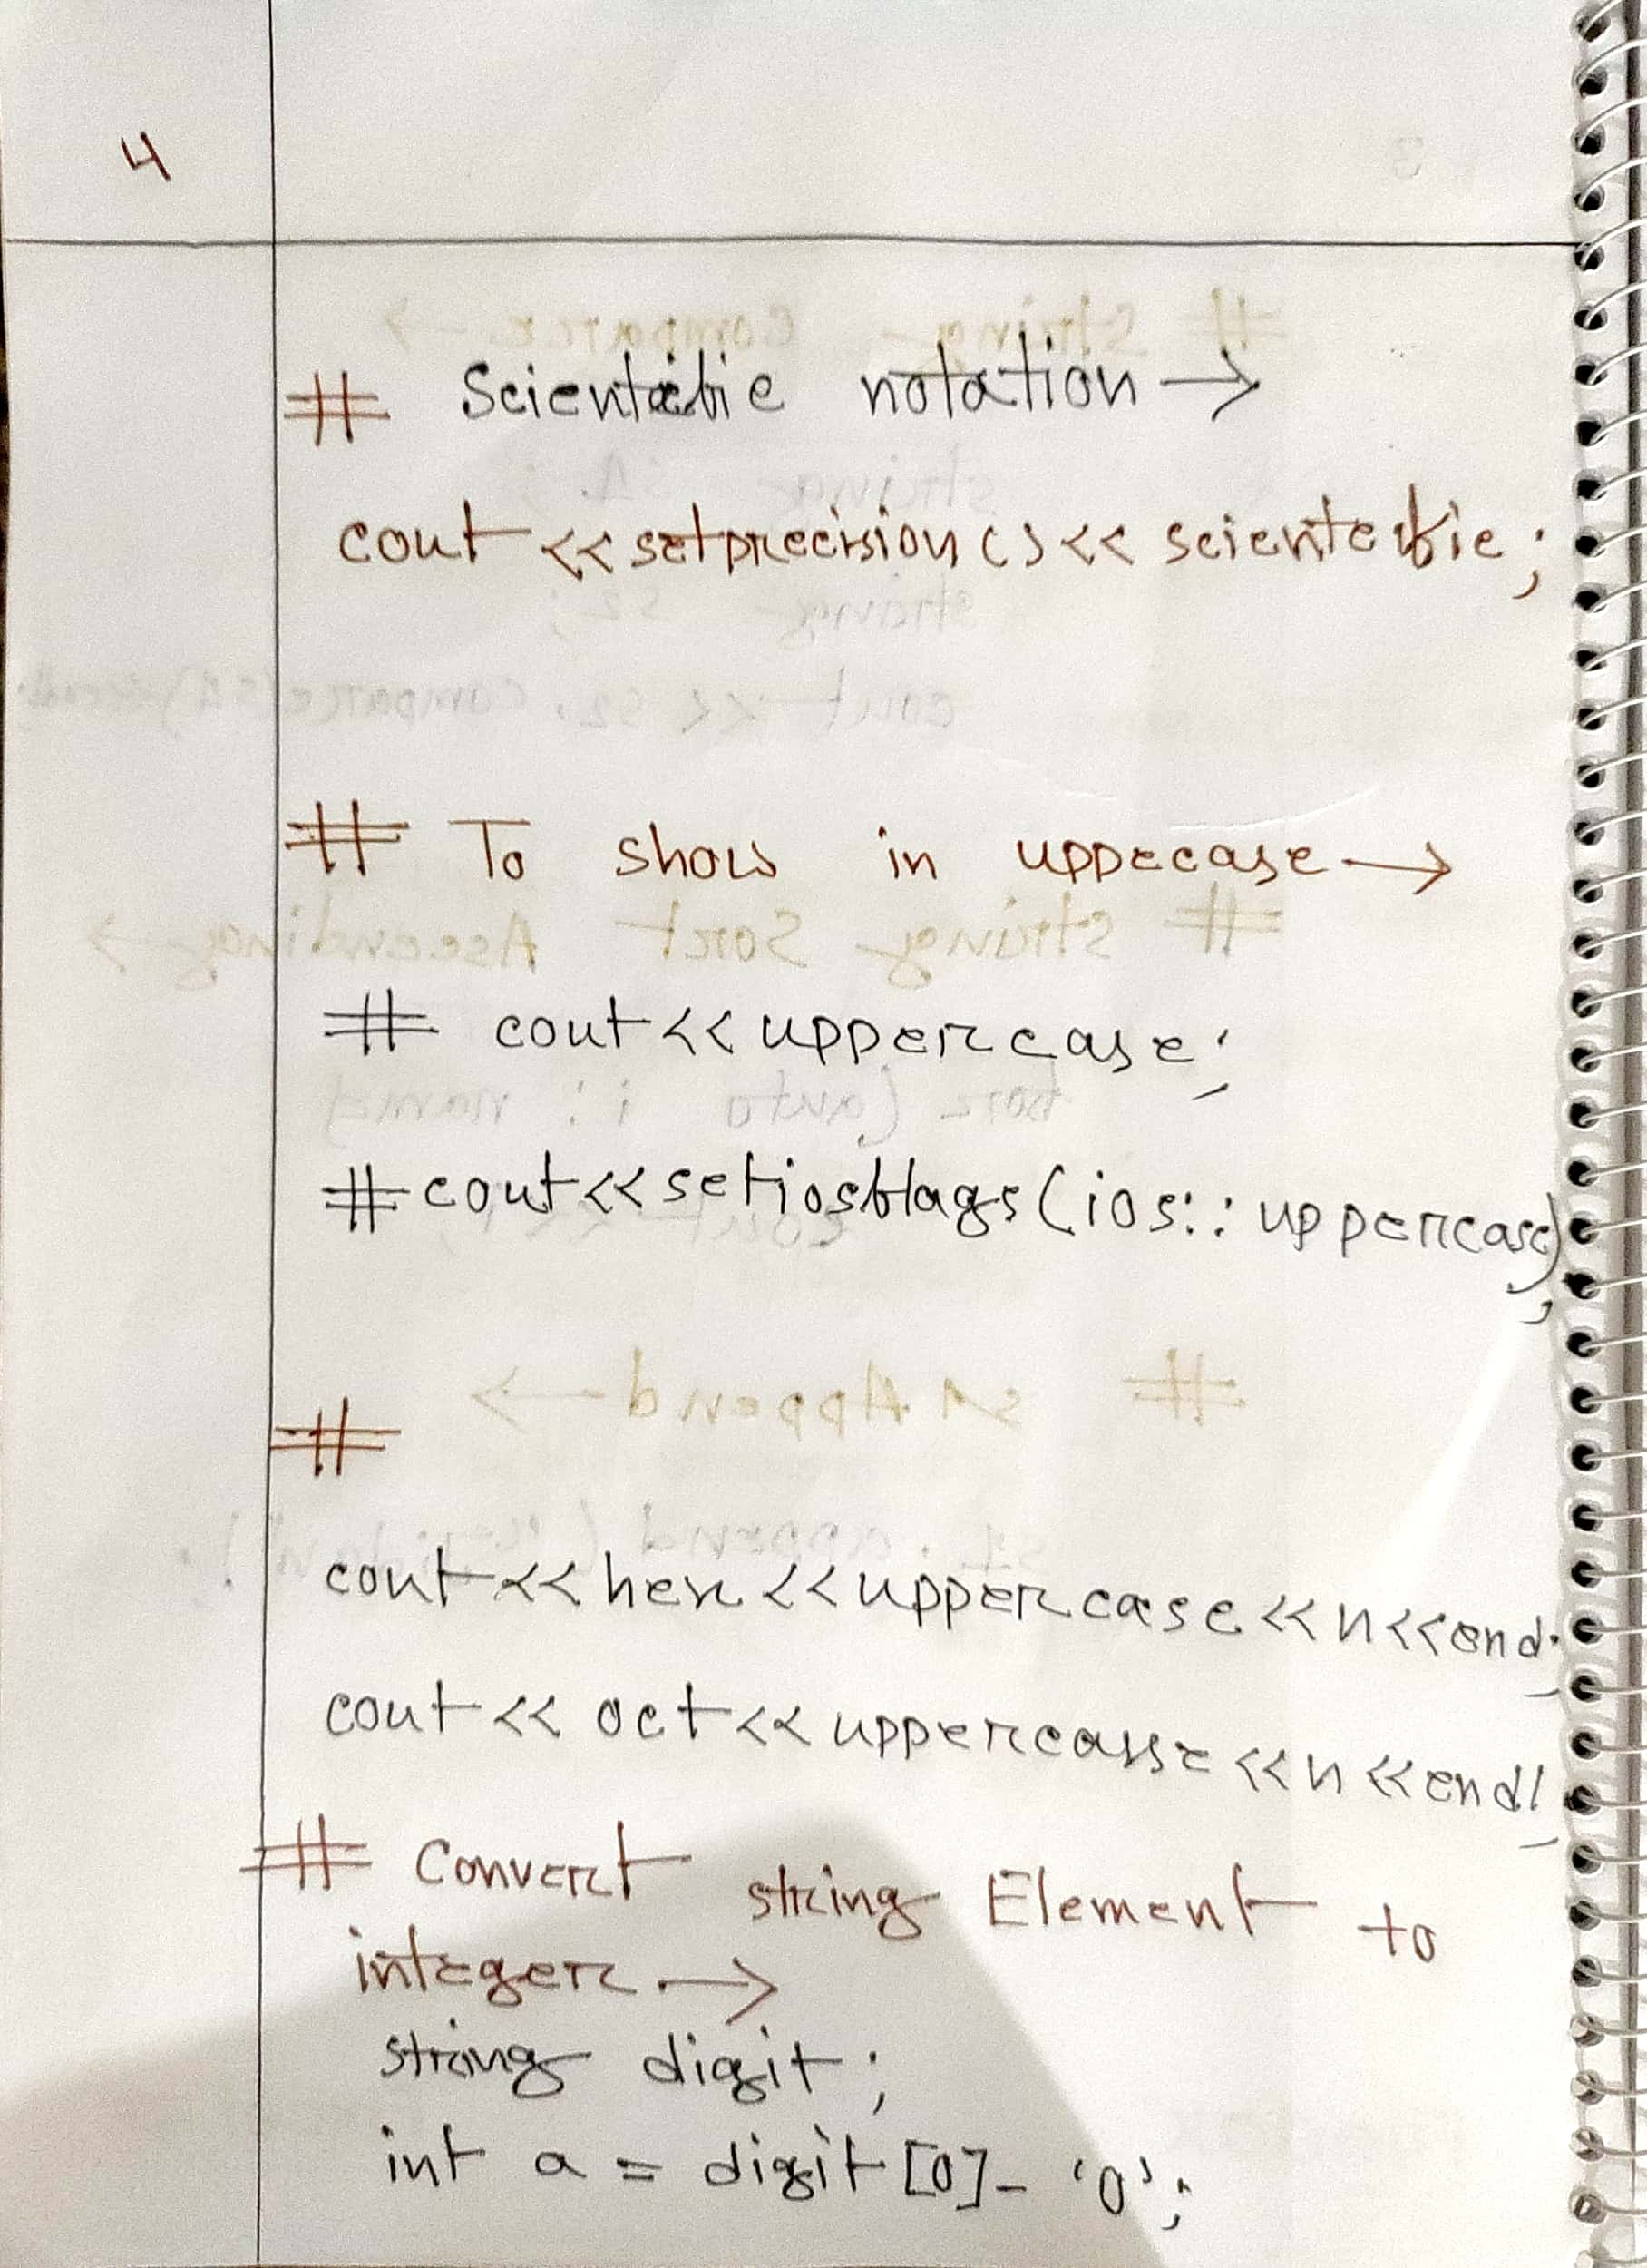 4
# Scientific notation →
cout << setprecision () << scientefic ;
# To show in uppecase →
# cout << uppercase ;
# cout << setiosflags (ios :: uppercase) ;
#
cout << hex << uppercase << n << end ;
cout << oct << uppercasse << n << endl ;
# Convert string Element to
integer →
string digit ;
int a = digit [0] - '0' ;